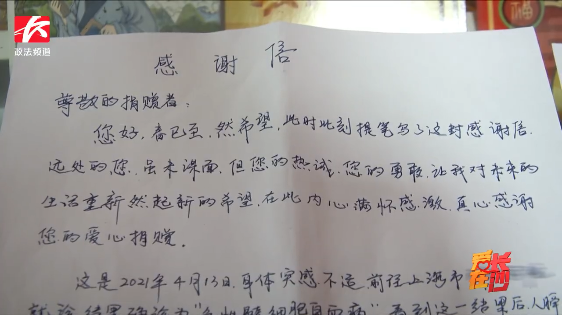 政法频道
感谢信
尊敬的捐赠者:
您好,春已至,然希望,此时此刻提笔写了这封感谢信,
远处的您,虽未谋面,但您的热诚,您的勇敢,让我对未来的
生活重新燃起新的希望,在此内心满怀感激,真心感谢
您的爱心捐赠。
这是2021年4月13日,身体突感不适前往上海市
就诊,结果确诊为“ 细胞白血病”,看到这一结果后,人瞬
爱在长沙
福